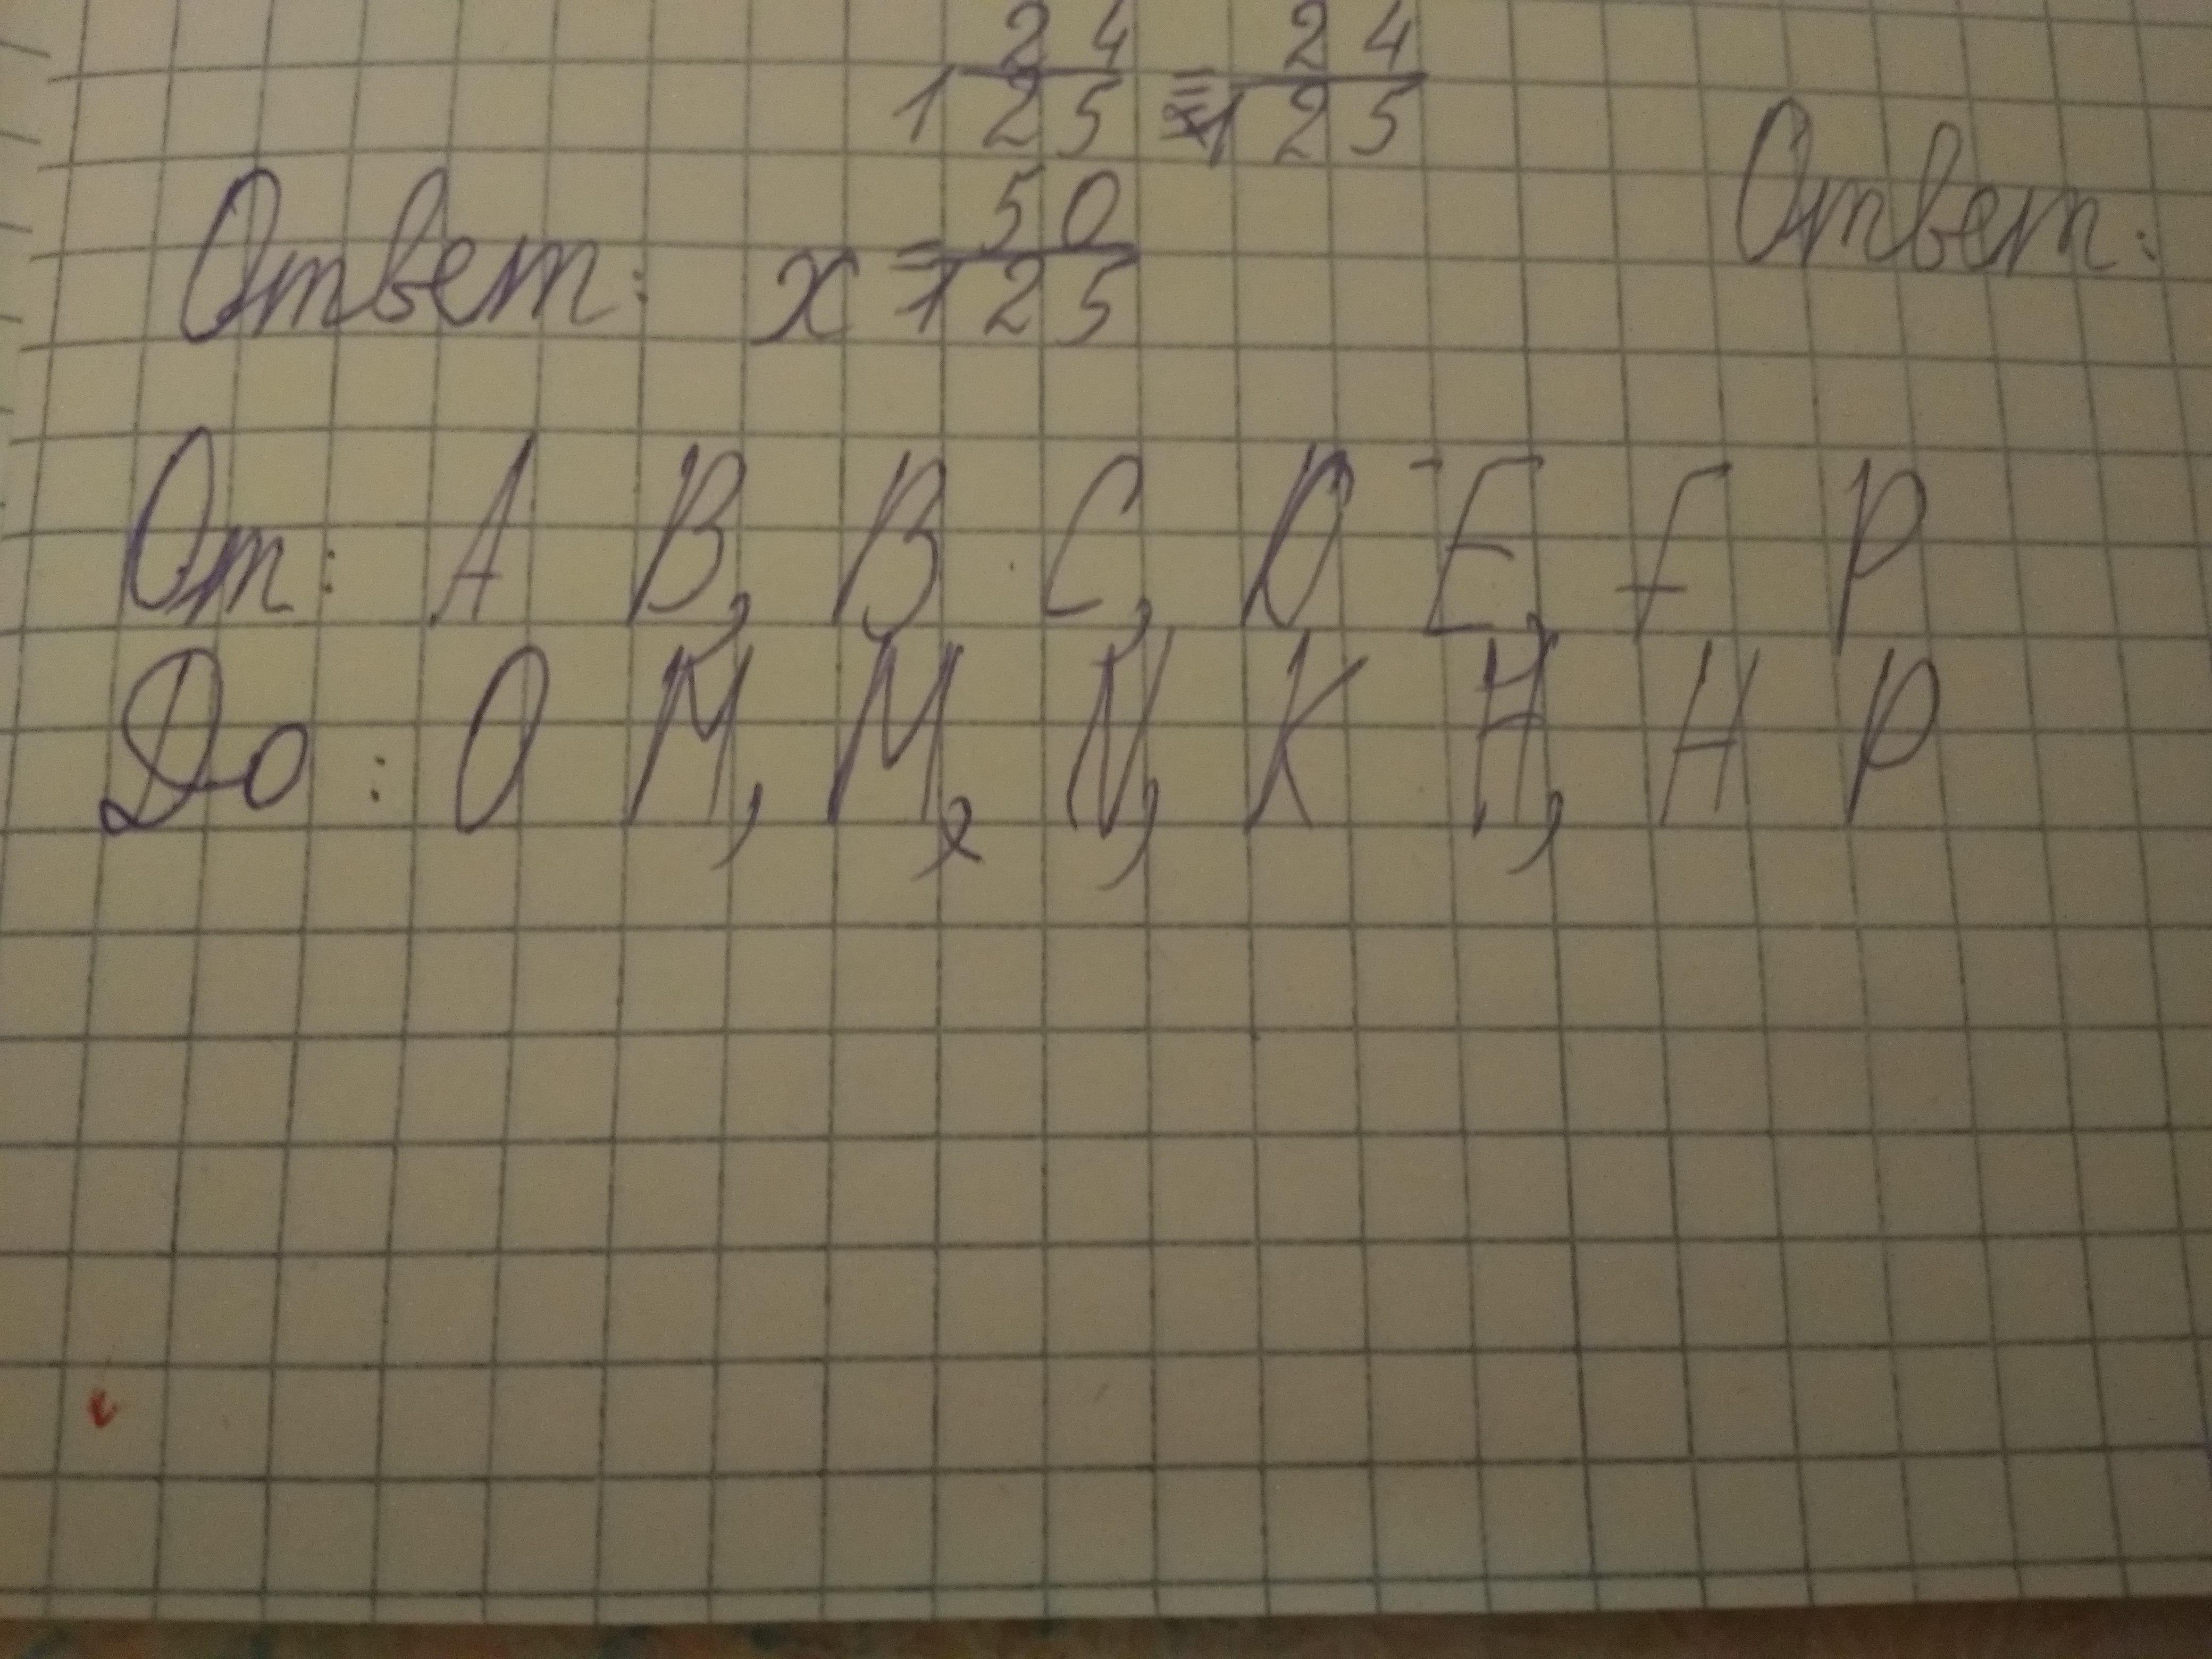 24/125 = 24/125
Ответ: x = 50/125 Ответ:
От: A B, B C, D E, F P
До: O M, M, N, K H, H P